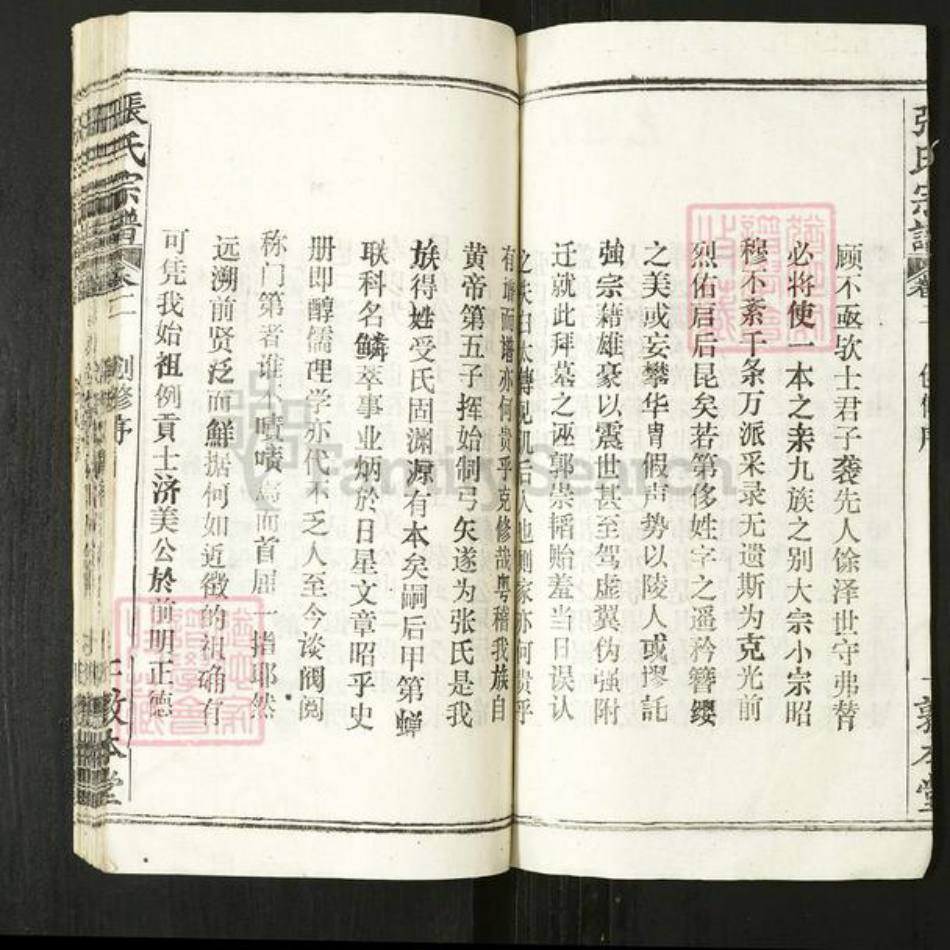 顾不亟欤士君子袭先人馀泽世守弗替
必将使一本之亲九族之别大宗小宗昭
穆不紊千条万派采录无遗斯为克光前
烈佑启后昆矣若第侈姓字之遥矜簪缨
之美或妄攀华胄假声势以陵人或摎託
強宗藉雄豪以震世甚至驾虚翼伪强附
迁就此拜墓之诬郭崇韬贻羞当日误认
之夫白太傅见讥后人也则家亦何贵乎
有谱而谱亦何贵乎克修哉粤稽我族自
黄帝第五子挥始制弓矢遂为张氏是我
族得姓受氏固渊源有本矣嗣后甲第蝉
联科名鳞萃事业炳於日星文章昭乎史
册即醇儒理学亦代不乏人至今谈阀阅
称门第者谁不啧啧焉而首屈一指耶然
远溯前贤泛而鮮据何如近徵的祖确有
可凭我始祖例貢士济美公於前明正德
張氏宗譜
卷二
創修序
敦本堂
FamilySearch